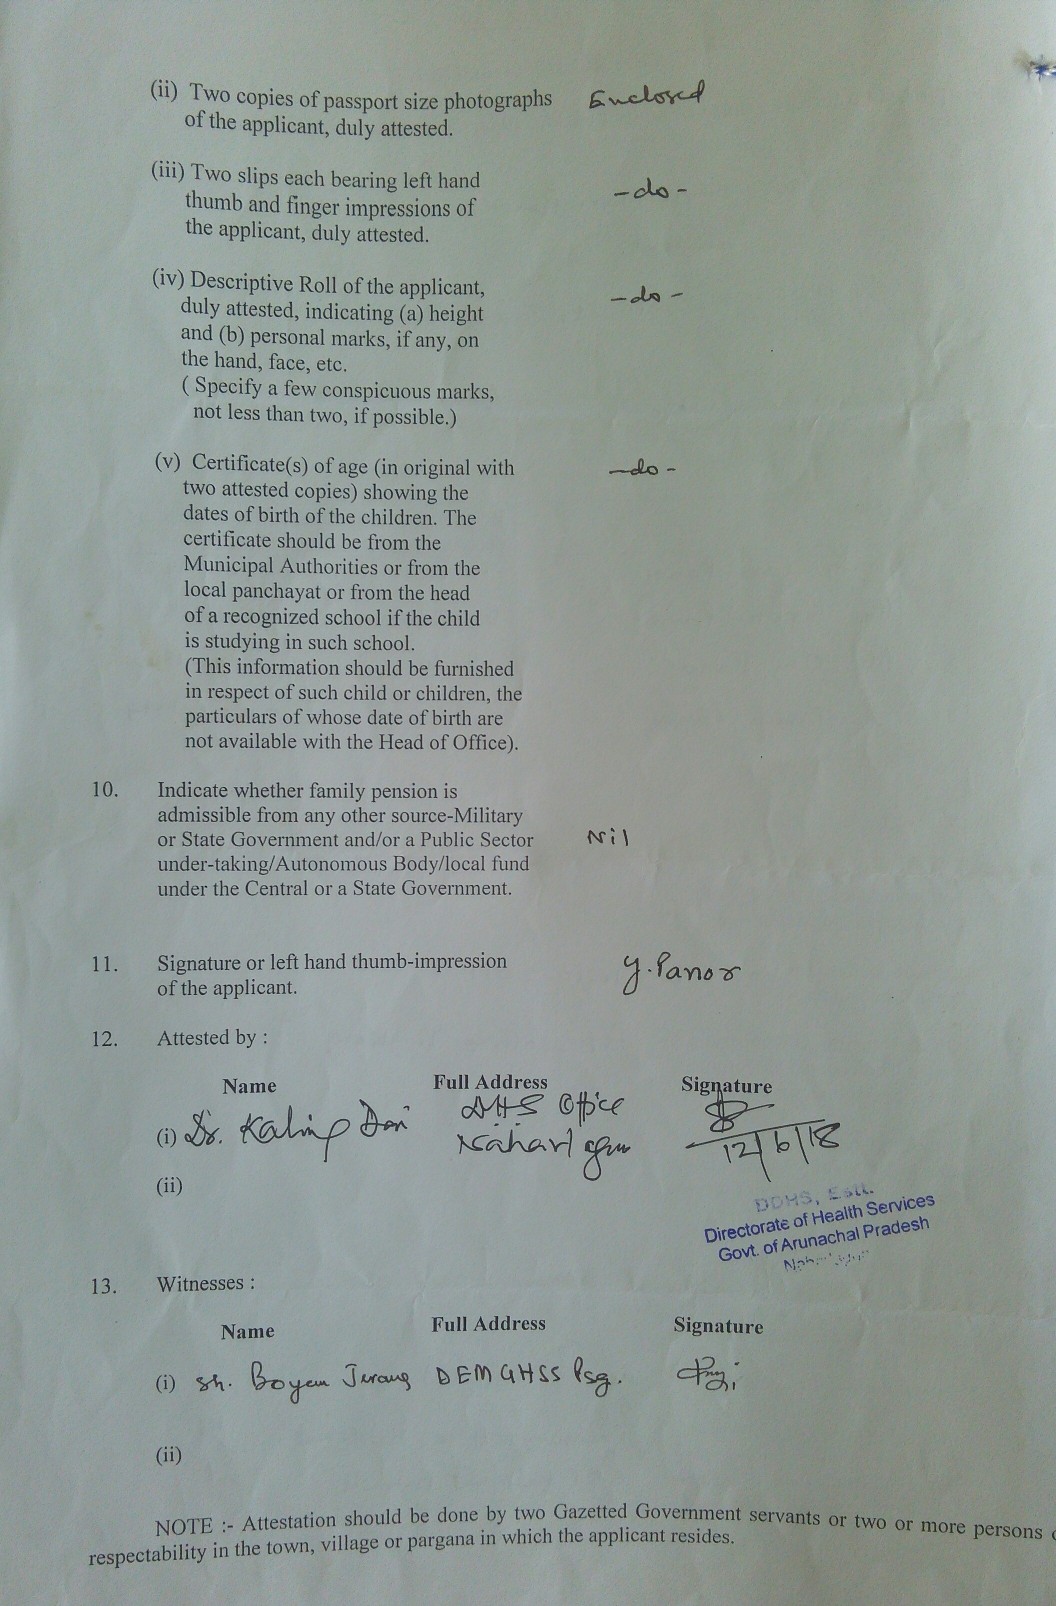 (ii) Two copies of passport size photographs Enclosed
of the applicant, duly attested.
(iii) Two slips each bearing left hand
thumb and finger impressions of -do-
the applicant, duly attested.
(iv) Descriptive Roll of the applicant,
duly attested, indicating (a) height -do-
and (b) personal marks, if any, on
the hand, face, etc.
( Specify a few conspicuous marks,
not less than two, if possible.)
(v) Certificate(s) of age (in original with -do-
two attested copies) showing the
dates of birth of the children. The
certificate should be from the
Municipal Authorities or from the
local panchayat or from the head
of a recognized school if the child
is studying in such school.
(This information should be furnished
in respect of such child or children, the
particulars of whose date of birth are
not available with the Head of Office).
10. Indicate whether family pension is
admissible from any other source-Military
or State Government and/or a Public Sector Nil
under-taking/Autonomous Body/local fund
under the Central or a State Government.
11. Signature or left hand thumb-impression Y. Panor
of the applicant.
12. Attested by :
Name Full Address Signature
DHS Office
(i) Dr. Kaling Dai 12/6/18
(ii)
DDHS, Estt.
Directorate of Health Services
Govt. of Arunachal Pradesh
13. Witnesses :
Name Full Address Signature
(i) Sh. Boyem Jerang DEM GHSS Psg.
(ii)
NOTE :- Attestation should be done by two Gazetted Government servants or two or more persons
respectability in the town, village or pargana in which the applicant resides.